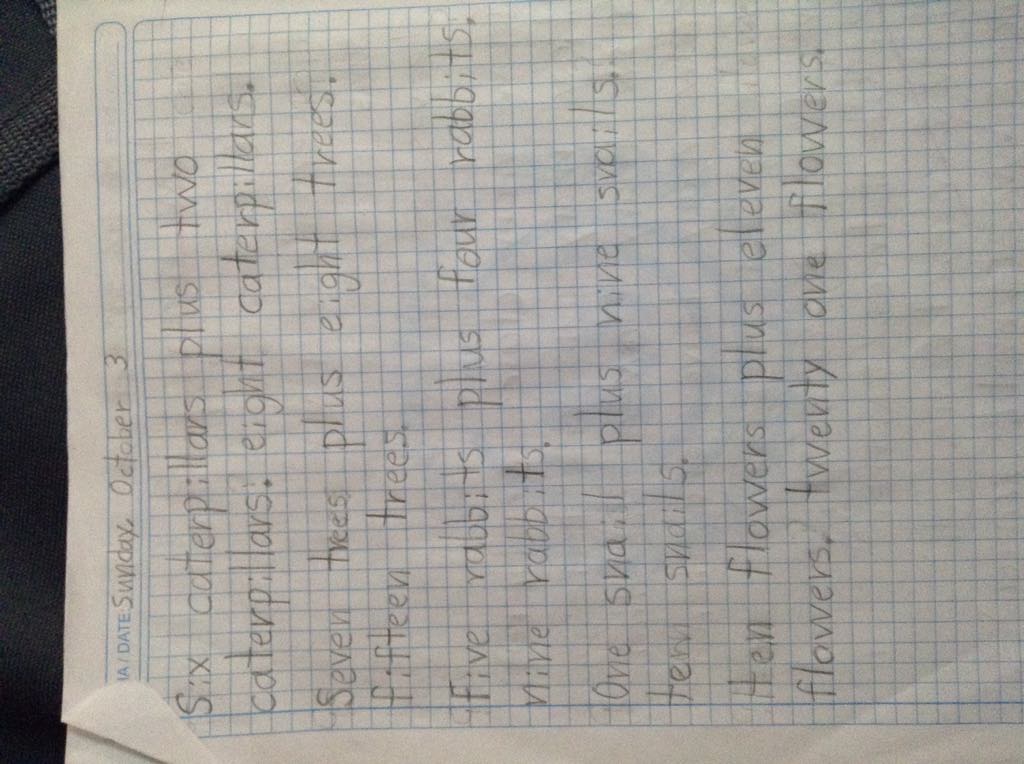 IA / DATE: Sunday, October 3
Six caterpillars plus two
caterpillars: eight caterpillars.
Seven trees plus eight trees:
fifteen trees.
Five rabbits plus four rabbits:
nine rabbits.
One snail plus nine snails:
ten snails.
ten flowers plus eleven
flowers: twenty one flowers.